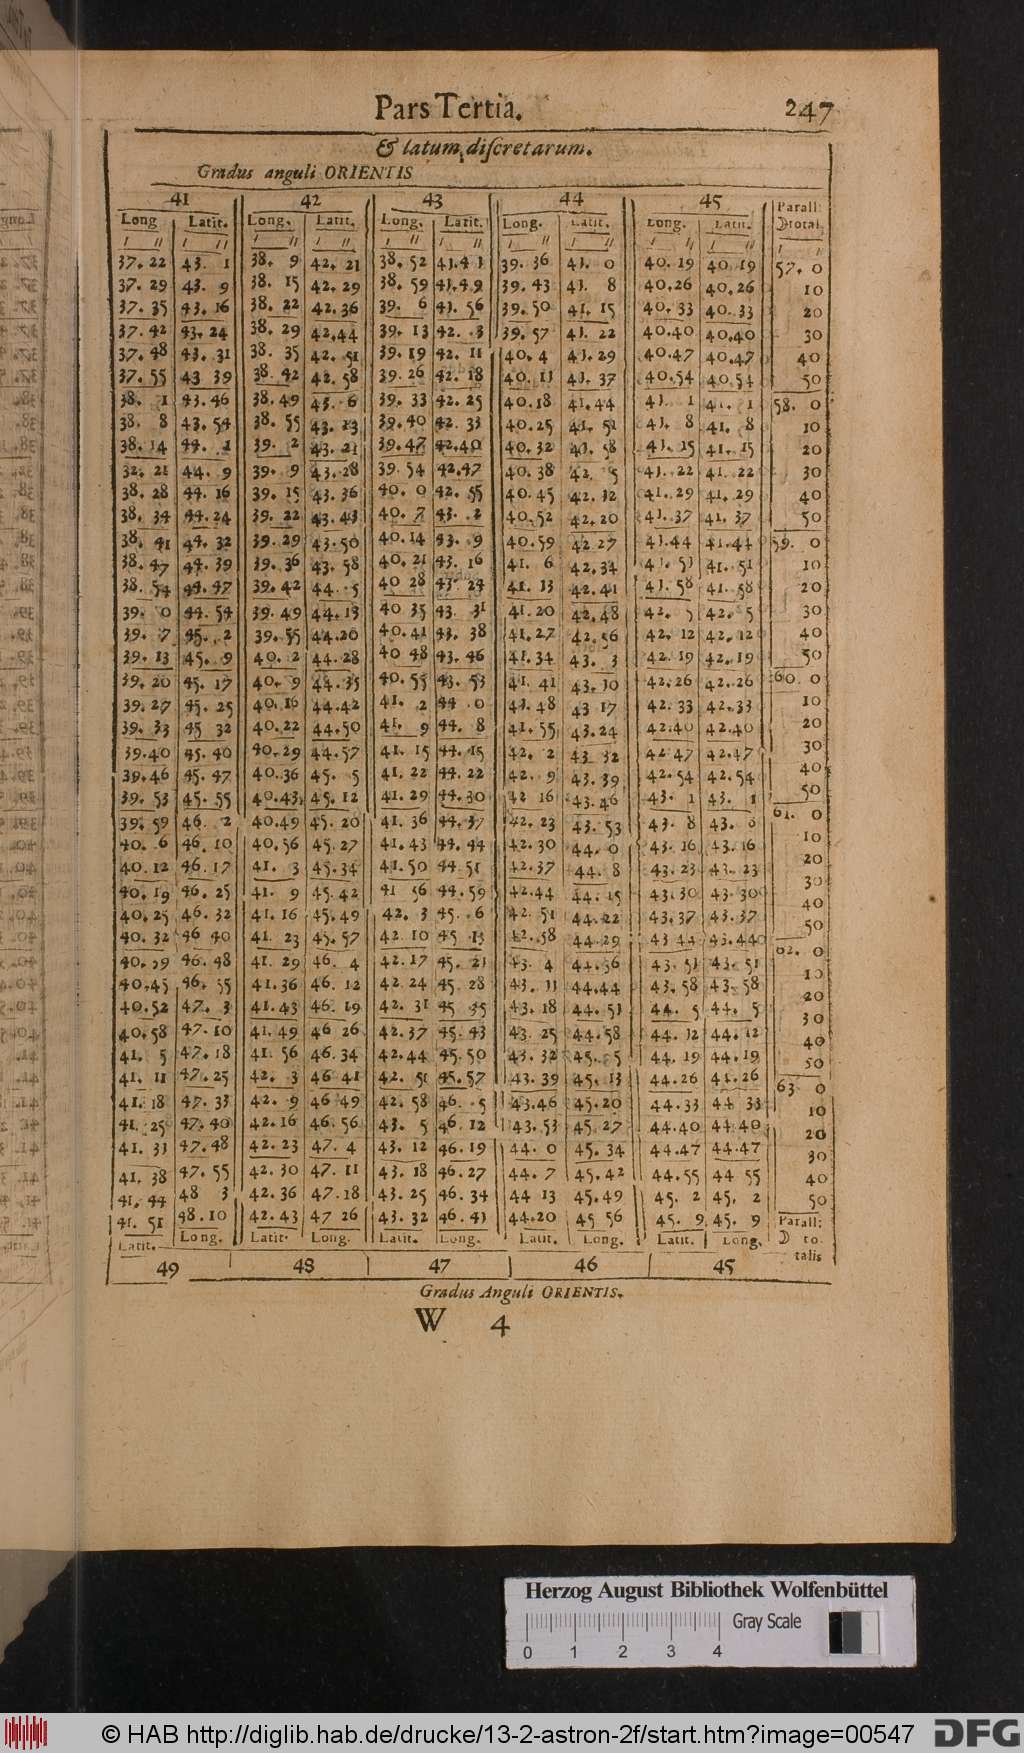 Pars Tertia. 247
& latum, discretarum.
Gradus anguli ORIENTIS
41 42 43 44 45 Parall:
Long Latit. Long. Latit. Long. Latit. Long. Latit. Long. Latit. ☽total
′ ″ ′ ″ ′ ″ ′ ″ ′ ″ ′ ″ ′ ″ ′ ″ ′ ″ ′ ″ ′ ″
37. 22 43. 1 38. 9 42. 21 38. 52 41.41 39. 36 41. 0 40. 19 40. 19 57. 0
37. 29 43. 9 38. 15 42. 29 38. 59 41.49 39. 43 41. 8 40.26 40.26 10
37. 35 43. 16 38. 22 42.36 39. 6 41. 56 39. 50 41. 15 40. 33 40. 33 20
37. 42 43. 24 38. 29 42.44 39. 13 42. 3 39. 57 41. 22 40.40 40.40 30
37. 48 43. 31 38. 35 42. 51 39. 19 42. 11 40. 4 41. 29 40.47 40.47 40
37. 55 43 39 38. 42 42. 58 39. 26 42. 18 40. 11 41. 37 40.54 40.54 50
38. 1 43.46 38.49 43. 6 39. 33 42. 25 40.18 41.44 41. 1 41. 1 58. 0
38. 8 43. 54 38. 55 43. 13 39.40 42. 33 40.25 41. 51 41. 8 41. 8 10
38. 14 44. 1 39. 2 43. 21 39.47 42.40 40. 32 41. 58 41. 15 41. 15 20
32. 21 44. 9 39. 9 43.28 39. 54 42.47 40. 38 42. 5 41. 22 41. 22 30
38. 28 44. 16 39. 15 43.36 40. 0 42. 55 40.45 42. 12 41. 29 41. 29 40
38. 34 44.24 39. 22 43.43 40. 7 43. 2 40.52 42.20 41. 37 41. 37 50
38. 41 44. 32 39.29 43.50 40.14 43. 9 40.59 42 27 41.44 41.44 59. 0
38. 47 44. 39 39. 36 43. 58 40. 21 43. 16 41. 6 42.34 41. 51 41. 51 10
38. 54 44. 47 39.42 44. 5 40 28 43. 24 41. 13 42.41 41. 58 41. 58 20
39. 0 44. 54 39.49 44.13 40 35 43. 31 41.20 42.48 42. 5 42. 5 30
39. 7 45. 2 39. 55 44.20 40.41 43. 38 41.27 42.56 42. 12 42. 12 40
39. 13 45. 9 40. 2 44.28 40 48 43. 46 41.34 43. 3 42. 19 42. 19 50
39. 20 45. 17 40. 9 44.35 40. 55 43. 53 41. 41 43. 10 42.26 42.26 60. 0
39. 27 45. 25 40.16 44.42 41. 2 44 0 41. 48 43 17 42. 33 42.33 10
39. 33 45 32 40.22 44.50 41. 9 44. 8 41. 55 43.24 42.40 42.40 20
39.40 45. 40 40.29 44.57 41. 15 44. 15 42. 2 43 32 42 47 42.47 30
39.46 45. 47 40.36 45. 5 41. 22 44. 22 42. 9 43. 39 42.54 42.54 40
39. 53 45. 55 40.43. 45. 12 41. 29 44. 30 42 16 43.46 43. 1 43. 1 50
39. 59 46. 2 40.49 45. 20 41. 36 44.37 42. 23 43. 53 43. 8 43. 8 61. 0
40. 6 46. 10 40.56 45.27 41.43 44. 44 42.30 44. 0 43. 16 43. 16 10
40. 12 46.17 41. 3 45.34 41.50 44 51 42.37 44. 8 43.23 43. 23 20
40. 19 46. 25 41. 9 45.42 41 56 44.59 42.44 44. 15 43.30 43.30 30
40.25 46. 32 41. 16 45.49 42. 3 45. 6 42. 51 44.22 43.37 43.37 40
40. 32 46 40 41. 23 45.57 42. 10 45 13 42.58 44.29 43 44 43.44 50
40.39 46. 48 41. 29 46. 4 42.17 45. 21 43. 4 44.36 43. 51 43. 51 62. 0
40.45 46. 55 41.36 46. 12 42 24 45. 28 43. 11 44.44 43.58 43.58 10
40.52 47. 3 41.43 46. 19 42. 31 45 35 43. 18 44. 51 44. 5 44. 5 20
40.58 47.10 41.49 46 26 42.37 45. 43 43. 25 44.58 44. 12 44.12 30
41. 5 47. 18 41. 56 46.34 42.44 45. 50 43. 32 45. 5 44. 19 44.19 40
41. 11 47.25 42. 3 46 41 42. 51 45.57 43. 39 45. 13 44.26 44.26 50
41. 18 47. 33 42. 9 46 49 42. 58 46. 5 43.46 45.20 44.33 44 33 63. 0
41. 25 47. 40 42.16 46.56 43. 5 46. 12 43. 53 45. 27 44.40 44.40 10
41. 31 47.48 42. 23 47. 4 43. 12 46.19 44. 0 45. 34 44.47 44.47 20
41. 38 47. 55 42. 30 47. 11 43. 18 46.27 44. 7 45.42 44.55 44 55 30
41. 44 48 3 42. 36 47.18 43. 25 46.34 44 13 45.49 45. 2 45. 2 40
41. 51 48.10 42.43 47 26 43. 32 46.41 44.20 45 56 45. 9 45. 9 50
Latit. Long. Latit. Long. Latit. Long. Latit. Long. Latit. Long. Parall: ☽ to-
talis
49 48 47 46 45
Gradus Anguli ORIENTIS.
W 4
Herzog August Bibliothek Wolfenbüttel
Gray Scale
0 1 2 3 4
© HAB http://diglib.hab.de/drucke/13-2-astron-2f/start.htm?image=00547 DFG